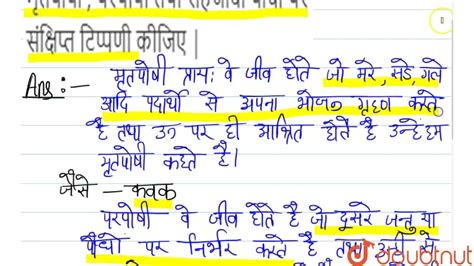 मृतपोषी, परपोषी तथा सहजीवी पौधों पर
संक्षिप्त टिप्पणी कीजिए |
Ans:— मृतपोषी प्रायः वे जीव होते जो मरे, सडे, गले
आदि पदार्थो से अपना भोजन गृहण करते
है तथा उन पर ही आश्रित होते है उन्हें हम
मृतपोषी कहते है।
जैसे — कवक
परपोषी वे जीव होते है जो दुसरे जन्तु या
पौधो पर निर्भर करते है तथा उन्ही से
doubtnut